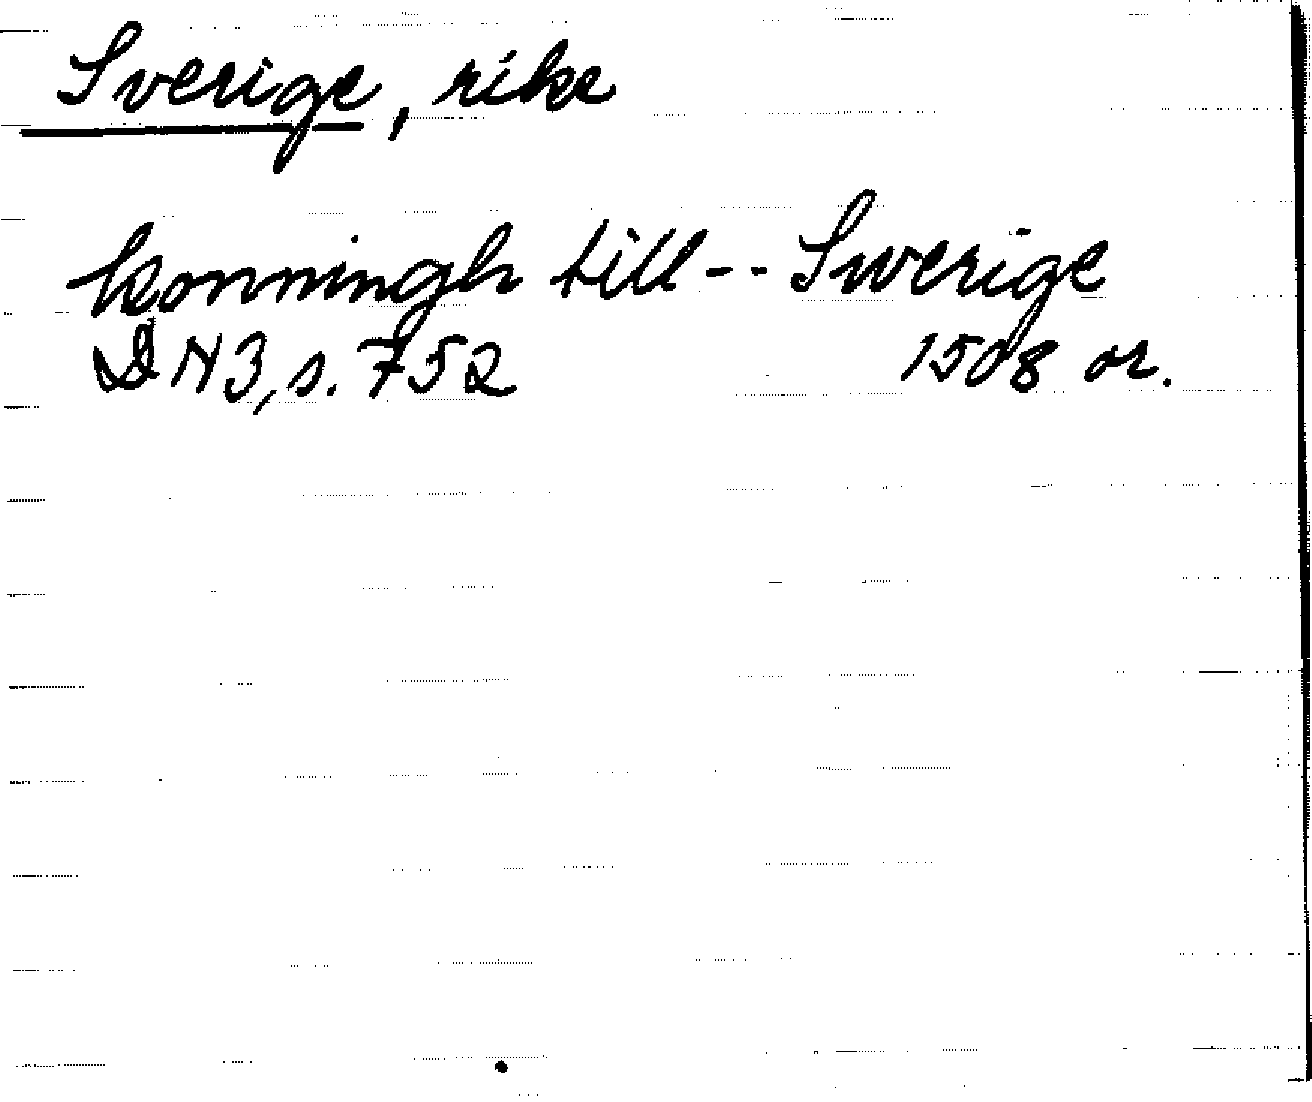 Sverige, rike
konningh till -- Swerige
DN 3, s. 752 1508 or.